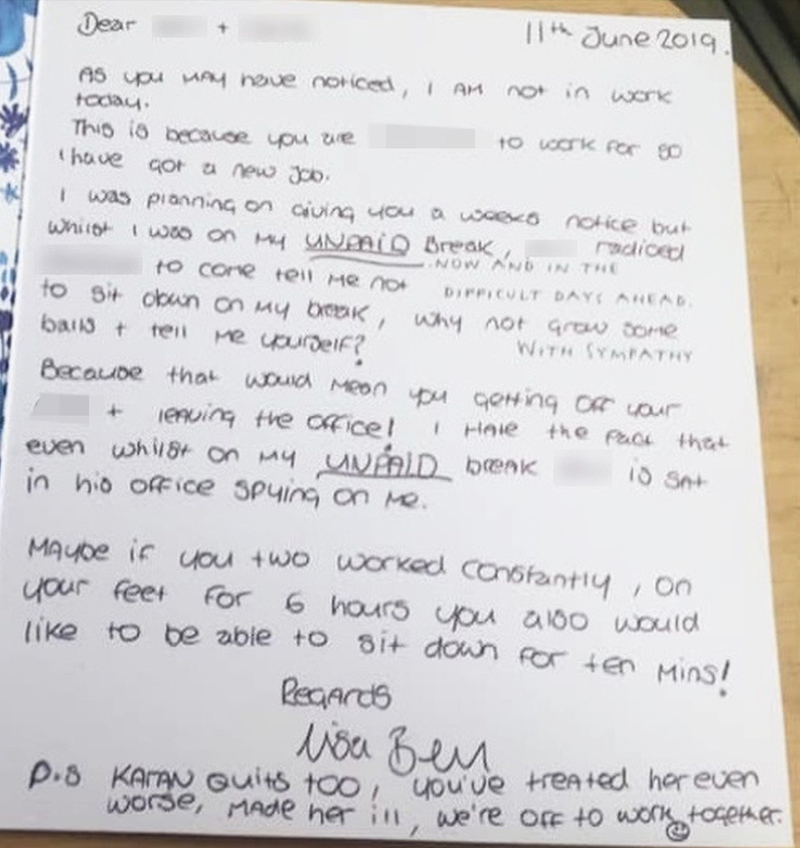 Dear + 11th June 2019.
As you may have noticed, I am not in work
today.
This is because you are to work for so
I have got a new job.
I was planning on giving you a weeks notice but
whilst I was on my UNPAID Break, radioed
NOW AND IN THE
to come tell me not
DIFFICULT DAYS AHEAD.
to sit down on my break, why not grow some
balls + tell me yourself?
WITH SYMPATHY
Because that would mean you getting off your
+ leaving the office! I Hate the fact that
even whilst on my UNPAID break is sat
in his office spying on me.
Maybe if you two worked constantly, on
your feet for 6 hours you also would
like to be able to sit down for ten mins!
Regards
Lisa
P.S KATAN Quits TOO, you've treated her even
worse, made her ill, we're off to work together.